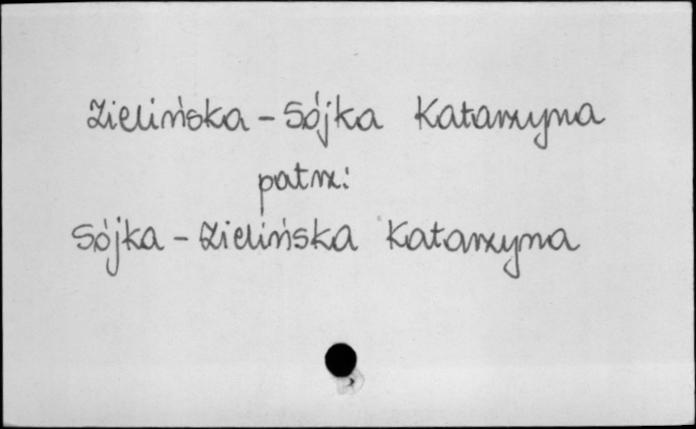 Zielińska - Sójka Katarzyna
patrz:
Sójka - Zielińska Katarzyna